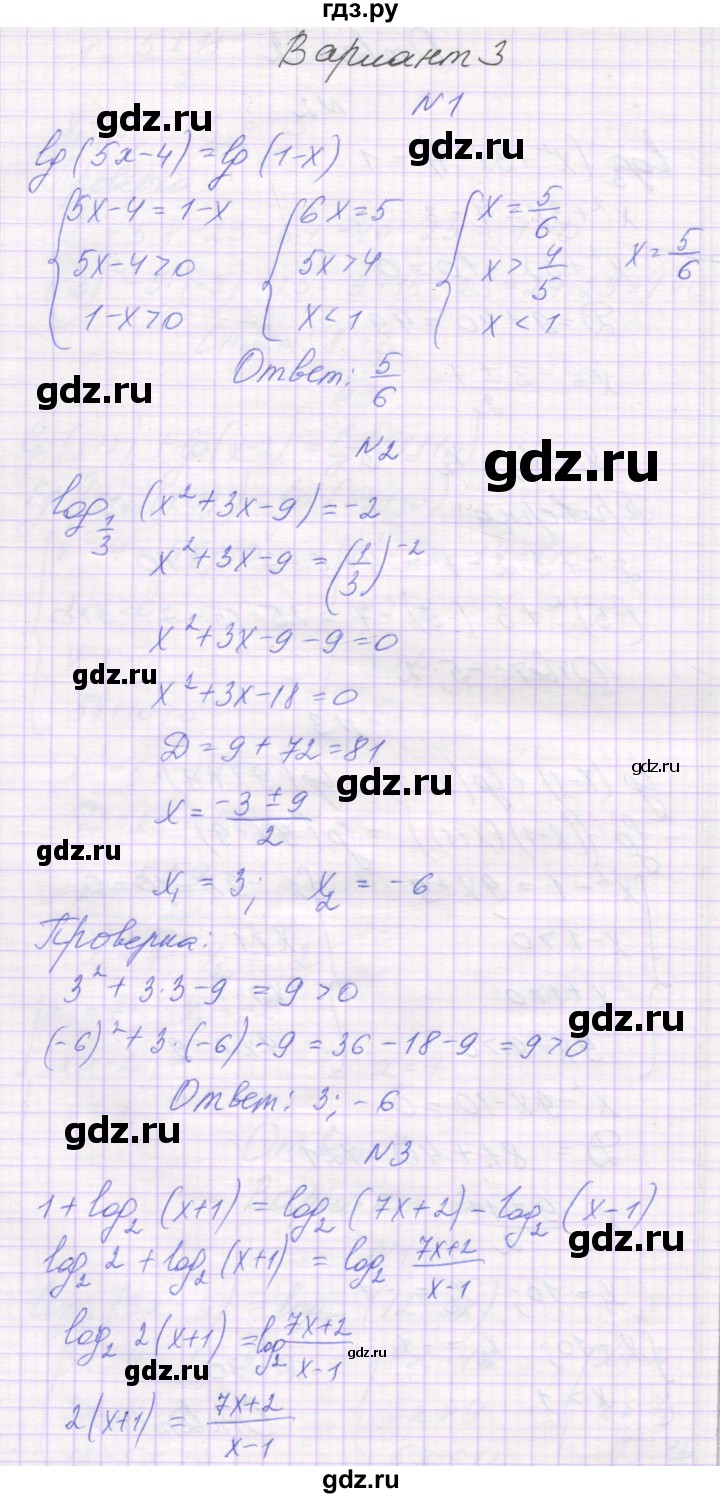 гдз.ру
Вариант 3
gdz.ru
N1
gdz.ru
lg(5x-4)=lg(1-x)
{5x-4=1-x {6x=5 {x=5/6
5x-4>0 5x>4 x>4/5 x=5/6
1-x>0 x<1 x<1
Ответ: 5/6
gdz.ru
N2
gdz.ru
log_{1/3}(x²+3x-9)=-2
x²+3x-9=(1/3)^{-2}
x²+3x-9-9=0
gdz.ru
x²+3x-18=0
Д=9+72=81
gdz.ru
gdz.ru
x=(-3±9)/2
gdz.ru
x₁=3; x₂=-6
Проверка:
3²+3·3-9=9>0
gdz.ru
(-6)²+3·(-6)-9=36-18-9=9>0
Ответ: 3; -6
gdz.ru
N3
1+log₂(x+1)=log₂(7x+2)-log₂(x-1)
gdz.ru
log₂2+log₂(x+1)=log₂ (7x+2)/(x-1)
log₂2(x+1)=log₂ (7x+2)/(x-1)
gdz.ru
gdz.ru
2(x+1)=(7x+2)/(x-1)
gdz.ru